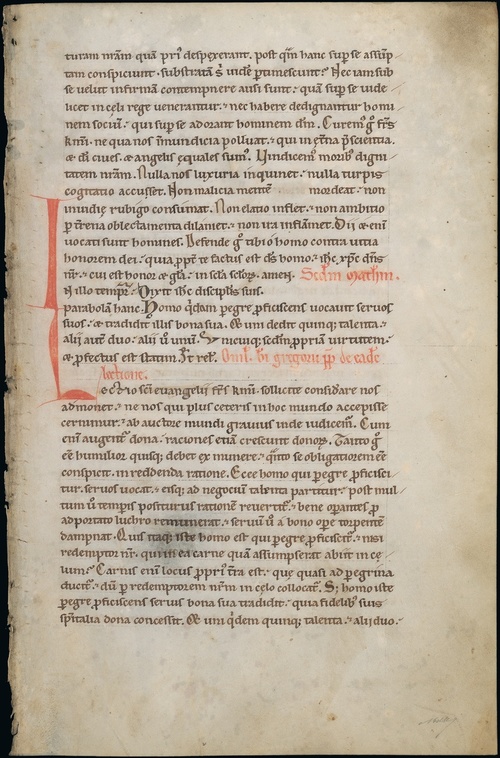 turam nr̄am quā pri᷒ despexerant. post qm̄ hanc sup se assūp
tam conspiciunt. substratā ſ᷒ uidē ptimescunt. Nec iam sub
se uelut infirmā contempnere ausi sunt. quā sup se uide
licet in celi rege uenerantur. nec habere dedignantur homi
nem sociū. qui sup se adorant hominem dm̄. Curem᷒ g̊ frs̄
kmī. ne qua nos īmundicia polluat. qui in ęt̄na p̄scientia.
& dī ciues. & angelis ęquales sum᷒. Uindicem᷒ morib᷒ digni
tatem nr̄am. Nulla nos luxuria inquinet. nulla turpis
cogitatio accuset. Non malicia mentē mordeat. non
inuidię rubigo consumat. Non elatio inflet. non ambitio
p t̄rena oblectamenta dilaniet. non ira inflamet. Dii &enī
uocati sunt homines. Defende g̊ tibi o homo contra uitia
honorem dei. quia ppt̄ te factus est ds̄ homo. ihc̄ xpc̄ dn̄s
nr̄. cui est honor & gla. in scla sclor̨. amen. Scdm matħm.
IN illo tempr̄. Dixit ihc̄ disciplis suis.
parabolā hanc. Homo qdam pegre pficiscens uocauit seruos
suos. & tradidit illis bona sua. Et uni dedit quinq; talenta.
alii aut̄ duo. alii ū unū. unicuiq; scdm ppriā uirtutem.
& pfectus est statim. Et rel̄. Omł. bi gregorii pp de eadē
lectione.
Lectio sc̄i euangelii frs̄ kmī. sollicite considare nos
admonet. ne nos qui plus ceteris in hoc mundo accepisse
cernimur. ab auctore mundi grauius inde iudicem᷒. Cum
enī augent᷒ dona. raciones etiā crescunt donor̨. Tanto g̊
ee humilior quisq; debet ex munere. q̄nto se obligatiorem ee
conspicit in reddenda ratione. Ecce homo qui pegre pficisci
tur. seruos uocat. eisq; ad negociū talenta partitur. post mul
tum ū tempis positurus rationē reuertit᷒. bene opantes p
adportato lucro remunerat. seruū ū a bono ope torpentē
dampnat. Quis itaq; iste homo est qui pegre pficiscit᷒. nisi
redemptor nr̄. qui in ea carne quā assumpserat abiit in cę
lum. Carnis enī locus ppri᷒ t̄ra est. quę quasi ad pegrina
ducit᷒. dū p redemptorem nr̄m in cęlo collocat᷒. S; homo iste
pegre pficiscens seruis bona sua tradidit. quia fidelib᷒ suis
spitalia dona concessit. Et uni qdem quinq; talenta. alii duo.